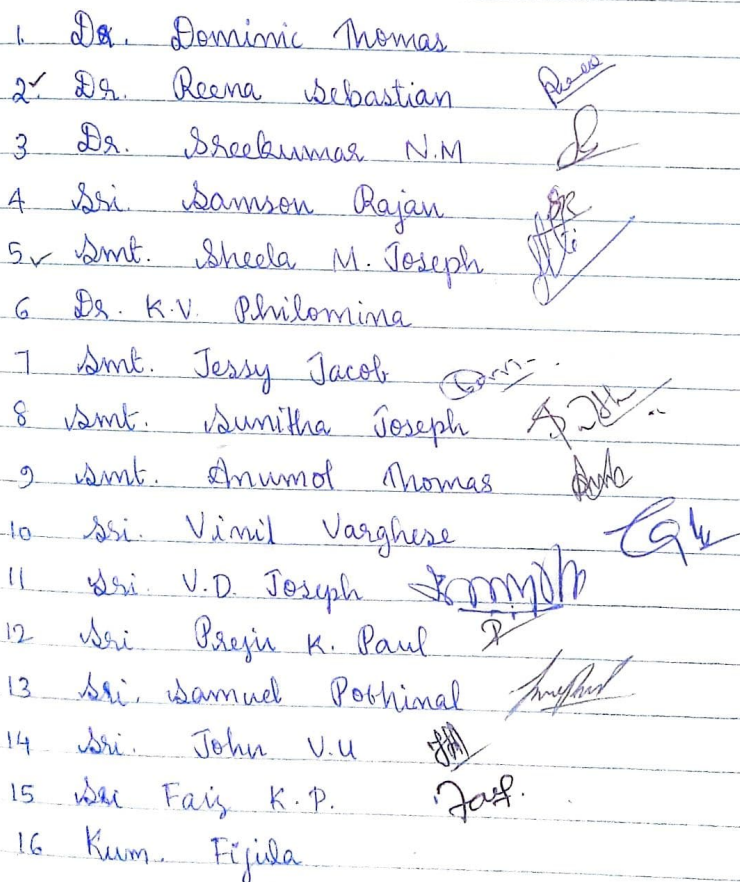 1. Dr. Dominic Thomas
2✓ Dr. Reena Sebastian
3 Dr. Sreekumar N.M
4 Sri. Samson Rajan
5✓ Smt. Sheela M. Joseph
6 Dr. K.V. Philomina
7 Smt. Jessy Jacob
8 Smt. Sunitha Joseph
9 Smt. Anumol Thomas
10 Sri. Vimil Varghese
11 Sri. V.D. Joseph
12 Sri Prejir K. Paul
13 Sri. Samuel Pothinal
14 Sri. John V.U
15 Sri Faiz K.P.
16 Kum. Fijula